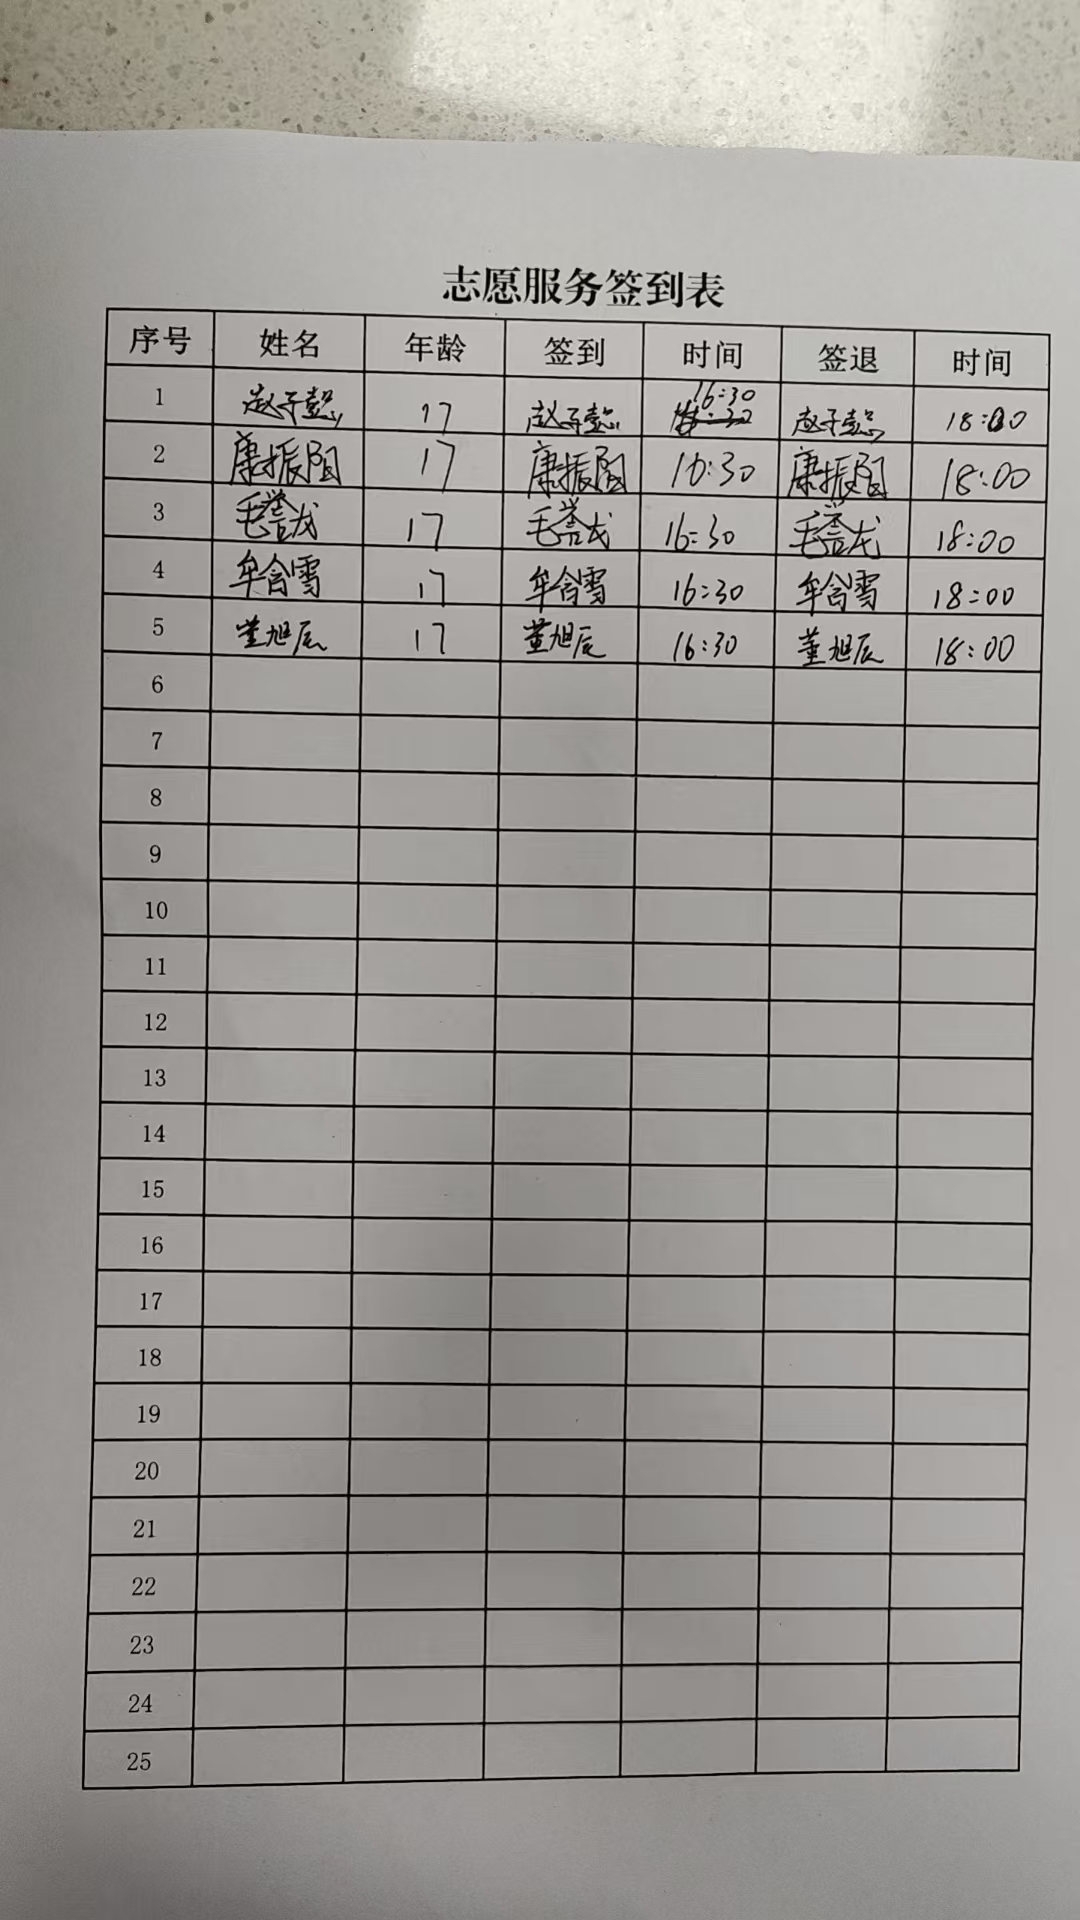 志愿服务签到表
序号 姓名 年龄 签到 时间 签退 时间
1 赵子懿 17 赵子懿 16:30 赵子懿 18:00
2 康振阳 17 康振阳 16:30 康振阳 18:00
3 毛誉龙 17 毛誉龙 16:30 毛誉龙 18:00
4 牟含雪 17 牟含雪 16:30 牟含雪 18:00
5 董旭辰 17 董旭辰 16:30 董旭辰 18:00
6
7
8
9
10
11
12
13
14
15
16
17
18
19
20
21
22
23
24
25